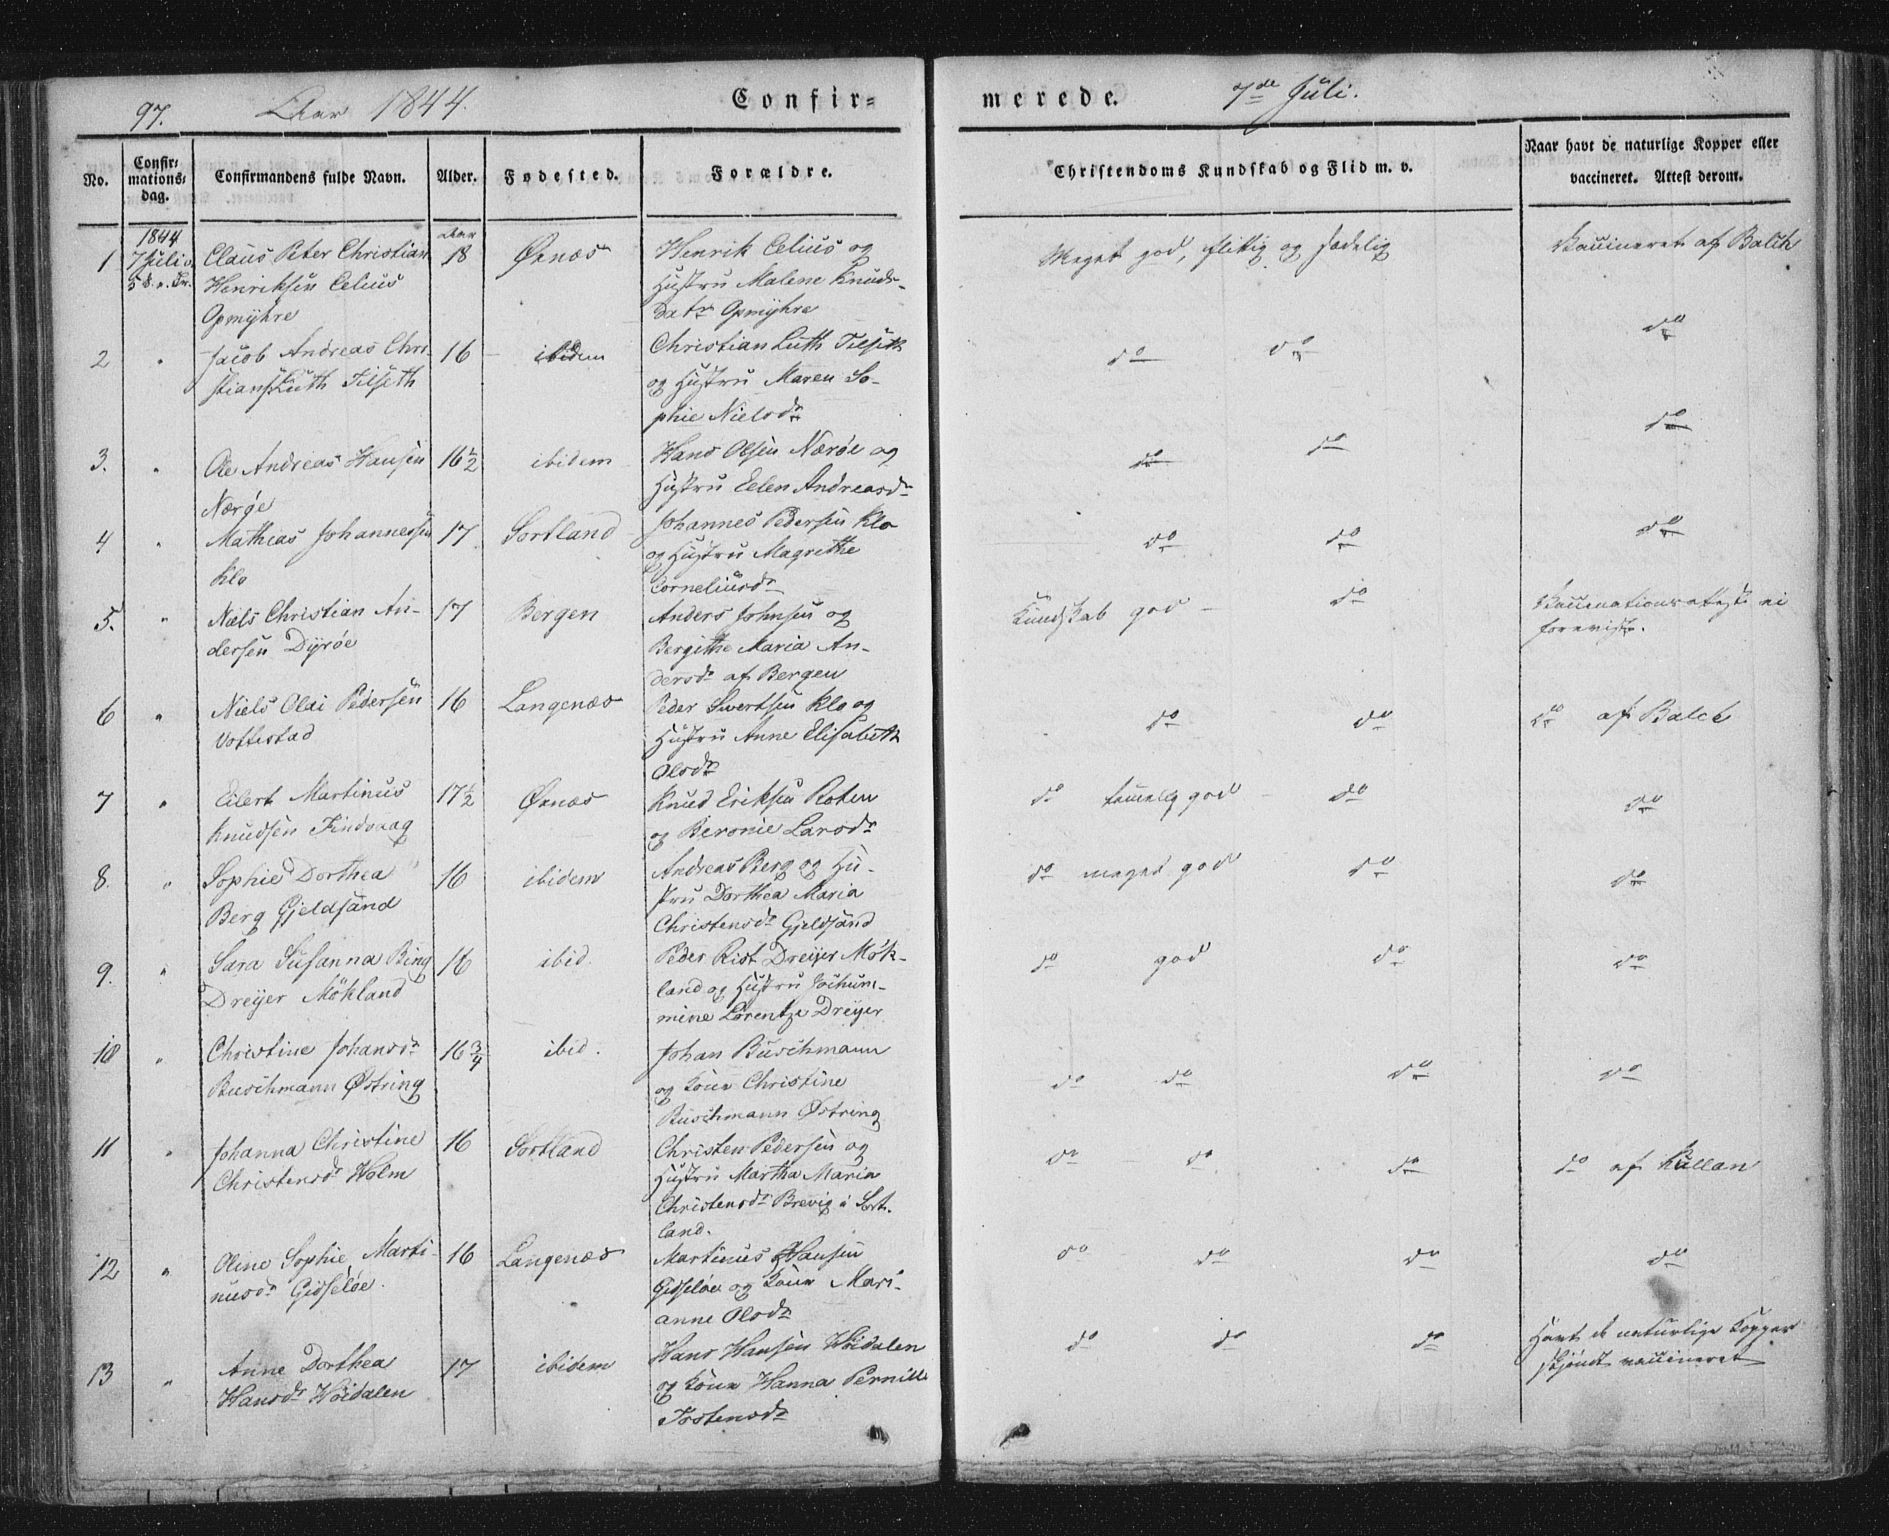 97. Aar 1844. Confir=
merede. 7de Juli.
No.
Confir:
mations:
dag.
Confirmandens fulde Navn.
Alder.
Fødested.
Forældre.
Christendoms Kundskab og Flid m. v.
Naar havt de naturlige Kopper eller
vaccineret. Attest derom.
1844 Aar
1 7 Juli Claus Peter Christian 18 Øxnæs Henrik Celius og Meget god, flittig og sædelig Vaccineret af Balch
Henriksen Celius Hustru Malene Knuds-
Opmyhre datr Opmyhre
2 " Jacob Andreas Chri- 16 ibidem Christian Luth Tilseth do do do
stians. Luth Tilseth og Hustru Maren So-
phie Nielsdr
3. " Ole Andreas Hansen 16½ ibidem Hans Olsen Nærøe og do do do
Nærøe Hustru Eelen Andreasdr
4 " Mathias Johannessen 17 Sortland Johannes Pedersen Klo do do do
Klo og Hustru Magrethe
Corneliusdr
5. " Niels Christian An- 17 Bergen Anders Johnsen og Kundskab god - do Vaccinationsatest ei
dersen Dyrøe Bergithe Maria An- forevist.
dersdr af Bergen
6 " Niels Olai Pedersen 16 Langenæs Peder Sivertsen Klo og do do do af Balch
Vottestad Hustru Anne Elisabeth
Olsdr
7 " Eilert Martinus 17½ Øxnæs Knud Eriksen Roten do temelig god - do do
Knudsen Findvaag og Beronie Larsdr
8. " Sophie Dorthea 16 ibidem Andreas Berg og Hu- do meget god do do
Berg Gjeldsand stru Dorthea Maria
Christensdr Gjeldsand
9. " Sara Susanna Bing 16 ibid. Peder Rist Dreyer Møk- do god do do
Dreyer Mökland land og Hustru Jochum-
mine Lorentze Dreyer
10 " Christine Johansdr 16¾ ibid. Johan Buschmann do do do do
Buschmann Østring og Kone Christine
Buschmann Østring
11 " Johanna Christine 16 Sortland Christen Pedersen og do do do do af Kullan
Christensdr Holm Hustru Martha Maria
Christensdr Brevig i Sort-
land.
12 " Oline Sophie Marti- 16 Langenæs Martinus Hansen do do do do
nusdr Gidseløe. Gidseløe og Kone Mari-
anne Olsdr
13 " Anne Dorthea 17 ibidem Hans Hansen Höidalen do do do Havt de naturlige Kopper
Hansdr Höidalen og Kone Hanna Pernille skjøndt vaccineret
Tostensdr